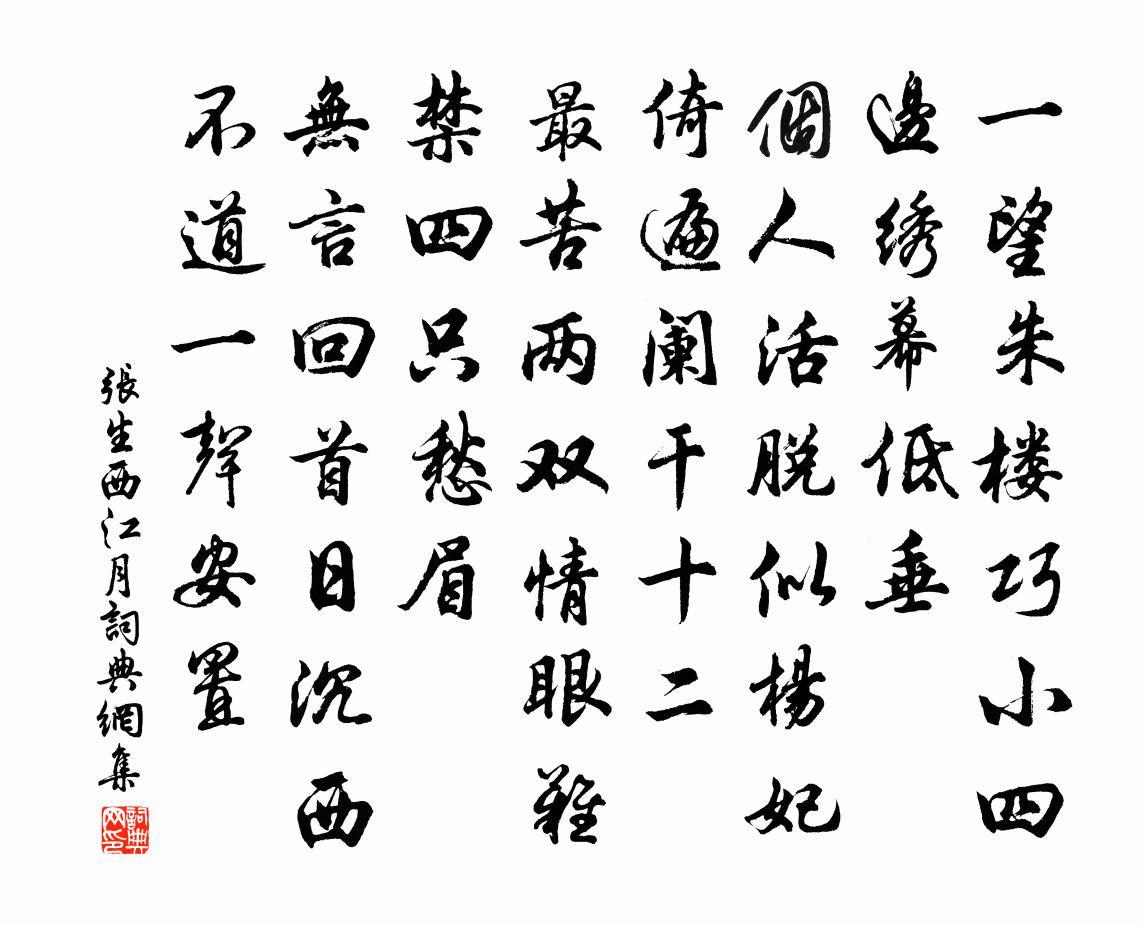 一望朱楼巧小四
邊绣幕低垂
個人活脱似楊妃
倚遍阑干十二
最苦两双情眼難
禁四只愁眉
無言回首日沉西
不道一聲安置
張生西江月詞典網集
詞典网印